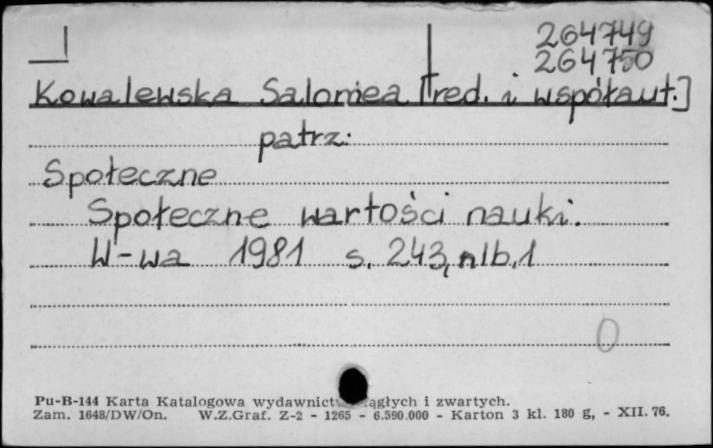 264749
264750
Kowalewska Salomea [red. i współaut.]
patrz:
Społeczne
Społeczne wartości nauki.
W-wa 1981 s. 243, nlb. 1
0
Pu-B-144 Karta Katalogowa wydawnictw ciągłych i zwartych.
Zam. 1648/DW/On. W.Z.Graf. Z-2 - 1265 - 6.590.000 - Karton 3 kl. 180 g, - XII. 76.